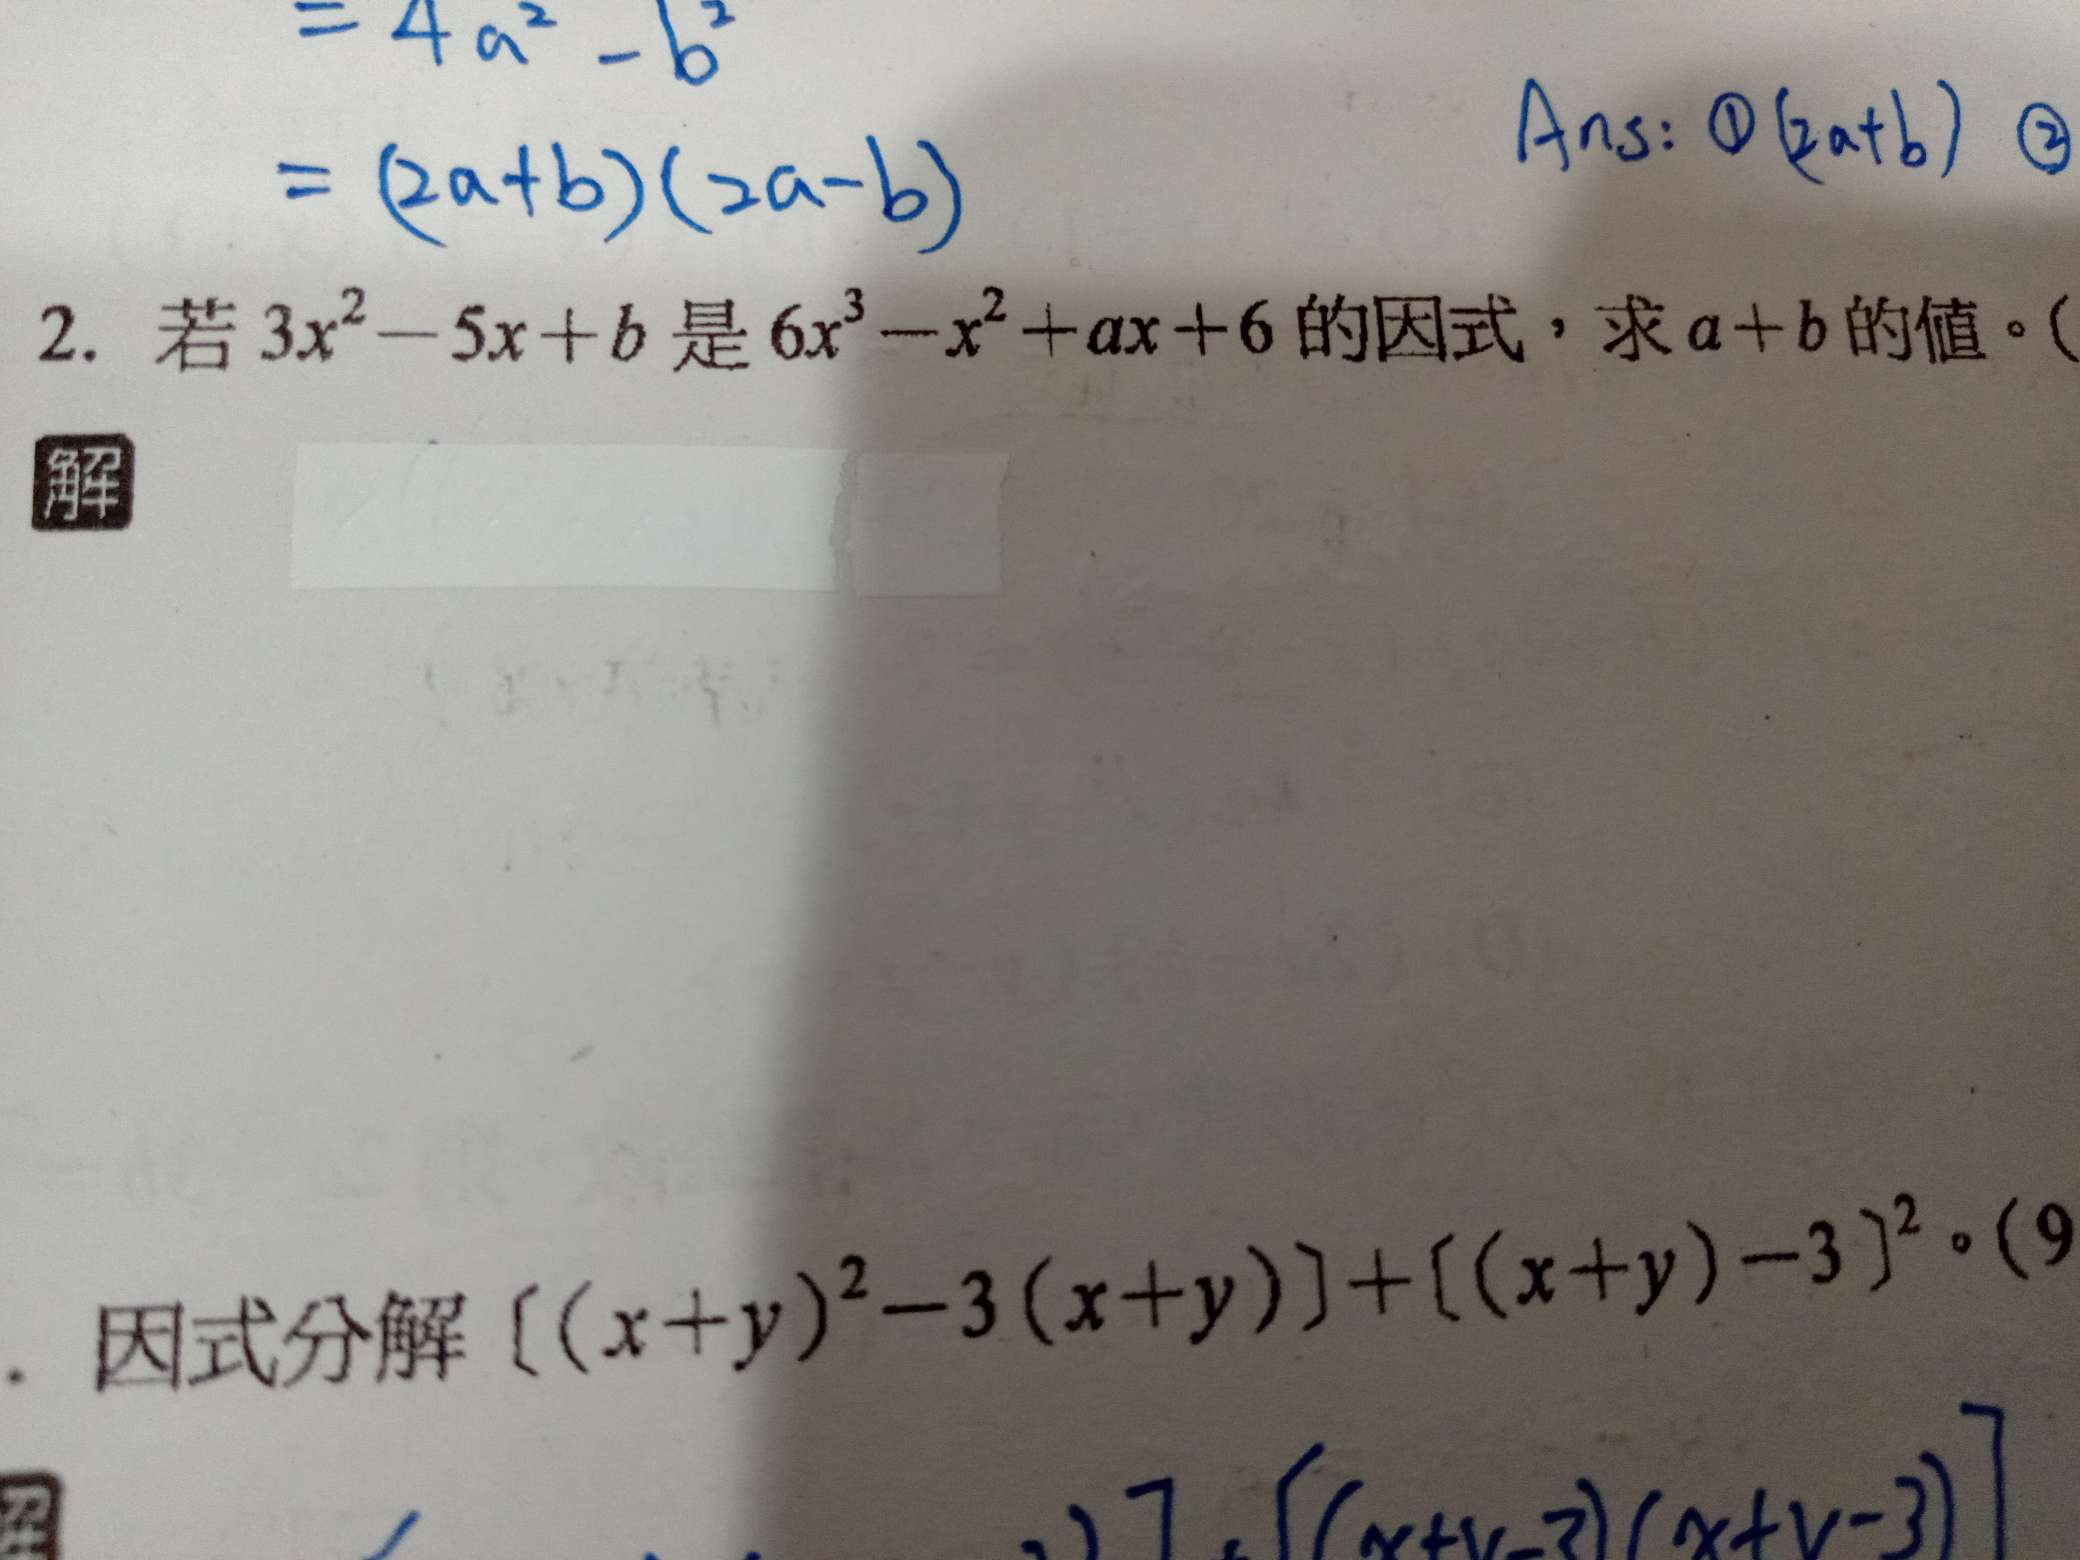 = 4a² - b²
= (2a+b)(2a-b)
Ans: ①(2a+b) ②
2. 若 3x²－5x＋b 是 6x³－x²＋ax＋6 的因式，求 a＋b 的值。(
解
. 因式分解〔(x＋y)²－3(x＋y)〕＋〔(x＋y)－3〕²。(9
解
)]+[(x+y-3)(x+y-3)]